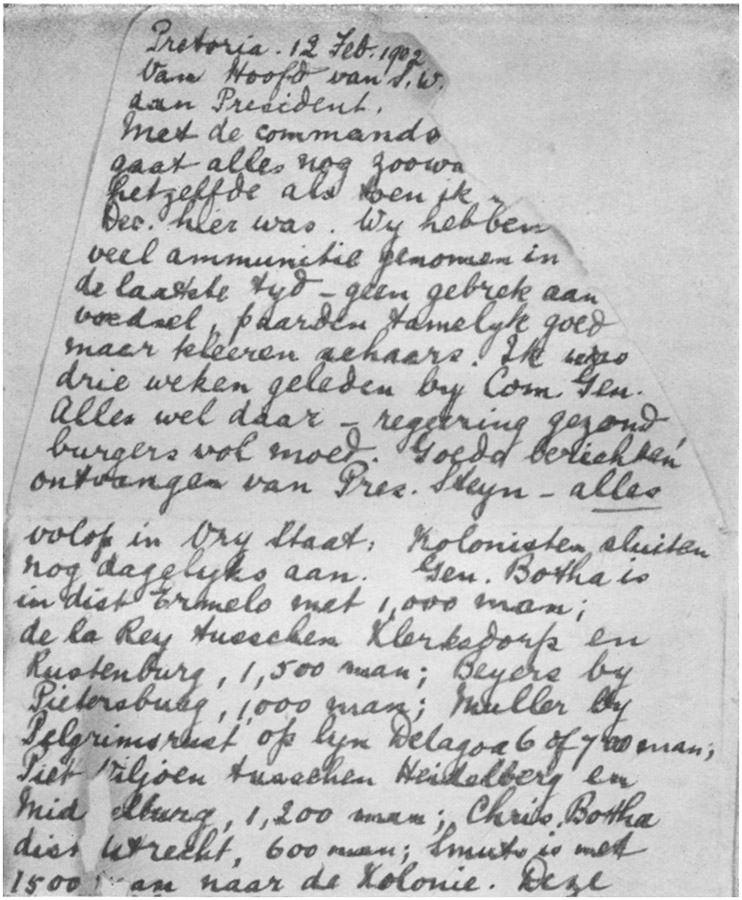 Pretoria. 12 Feb. 1902
Van Hoofd van S.W.
aan President.
Met de commando
gaat alles nog zoowa
hetzelfde als toen ik
Dec. hier was. Wy hebben
veel ammunitie genomen in
de laatste tyd – geen gebrek aan
voedsel, paarden tamelyk goed
maar kleeren schaars. Ik was
drie weken geleden by Com. Gen.
Alles wel daar – regeering gezond,
burgers vol moed. Goede berichten
ontvangen van Pres. Steyn – alles
volop in Vry Staat; Kolonisten sluiten
nog dagelyks aan. Gen. Botha is
in dist Ermelo met 1,000 man;
de la Rey tusschen Klerksdorp en
Rustenburg, 1,500 man; Beyers by
Pietersburg, 1,000 man; Muller by
Pelgrimsrust op lyn Delagoa 6 of 700 man;
Piet Viljoen tusschen Heidelberg en
Mid elburg, 1,200 man; Chris. Botha
dist Utrecht, 600 man; Smuts is met
1500 an naar de Kolonie. Deze